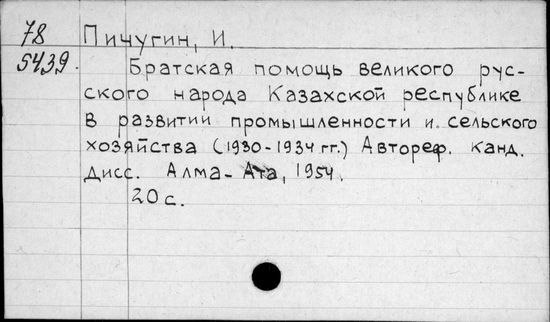 78 Пичугин, И.
5439. Братская помощь великого рус-
ского народа Казахской республике
в развитии промышленности и сельского
хозяйства (1930-1934 гг.) Автореф. канд.
дисс. Алма-Ата, 1954.
20 с.